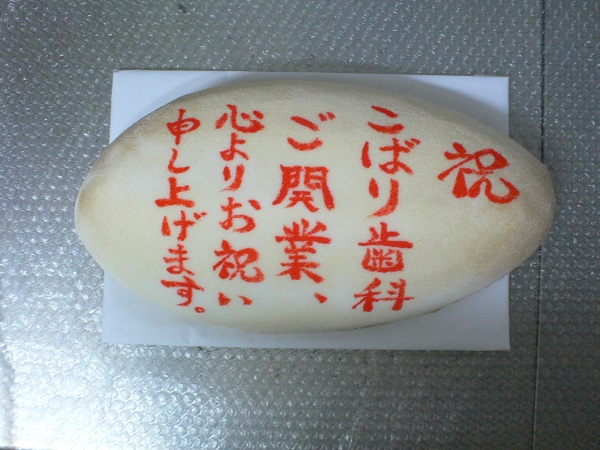 祝
こばり歯科
ご開業、
心よりお祝い
申し上げます。